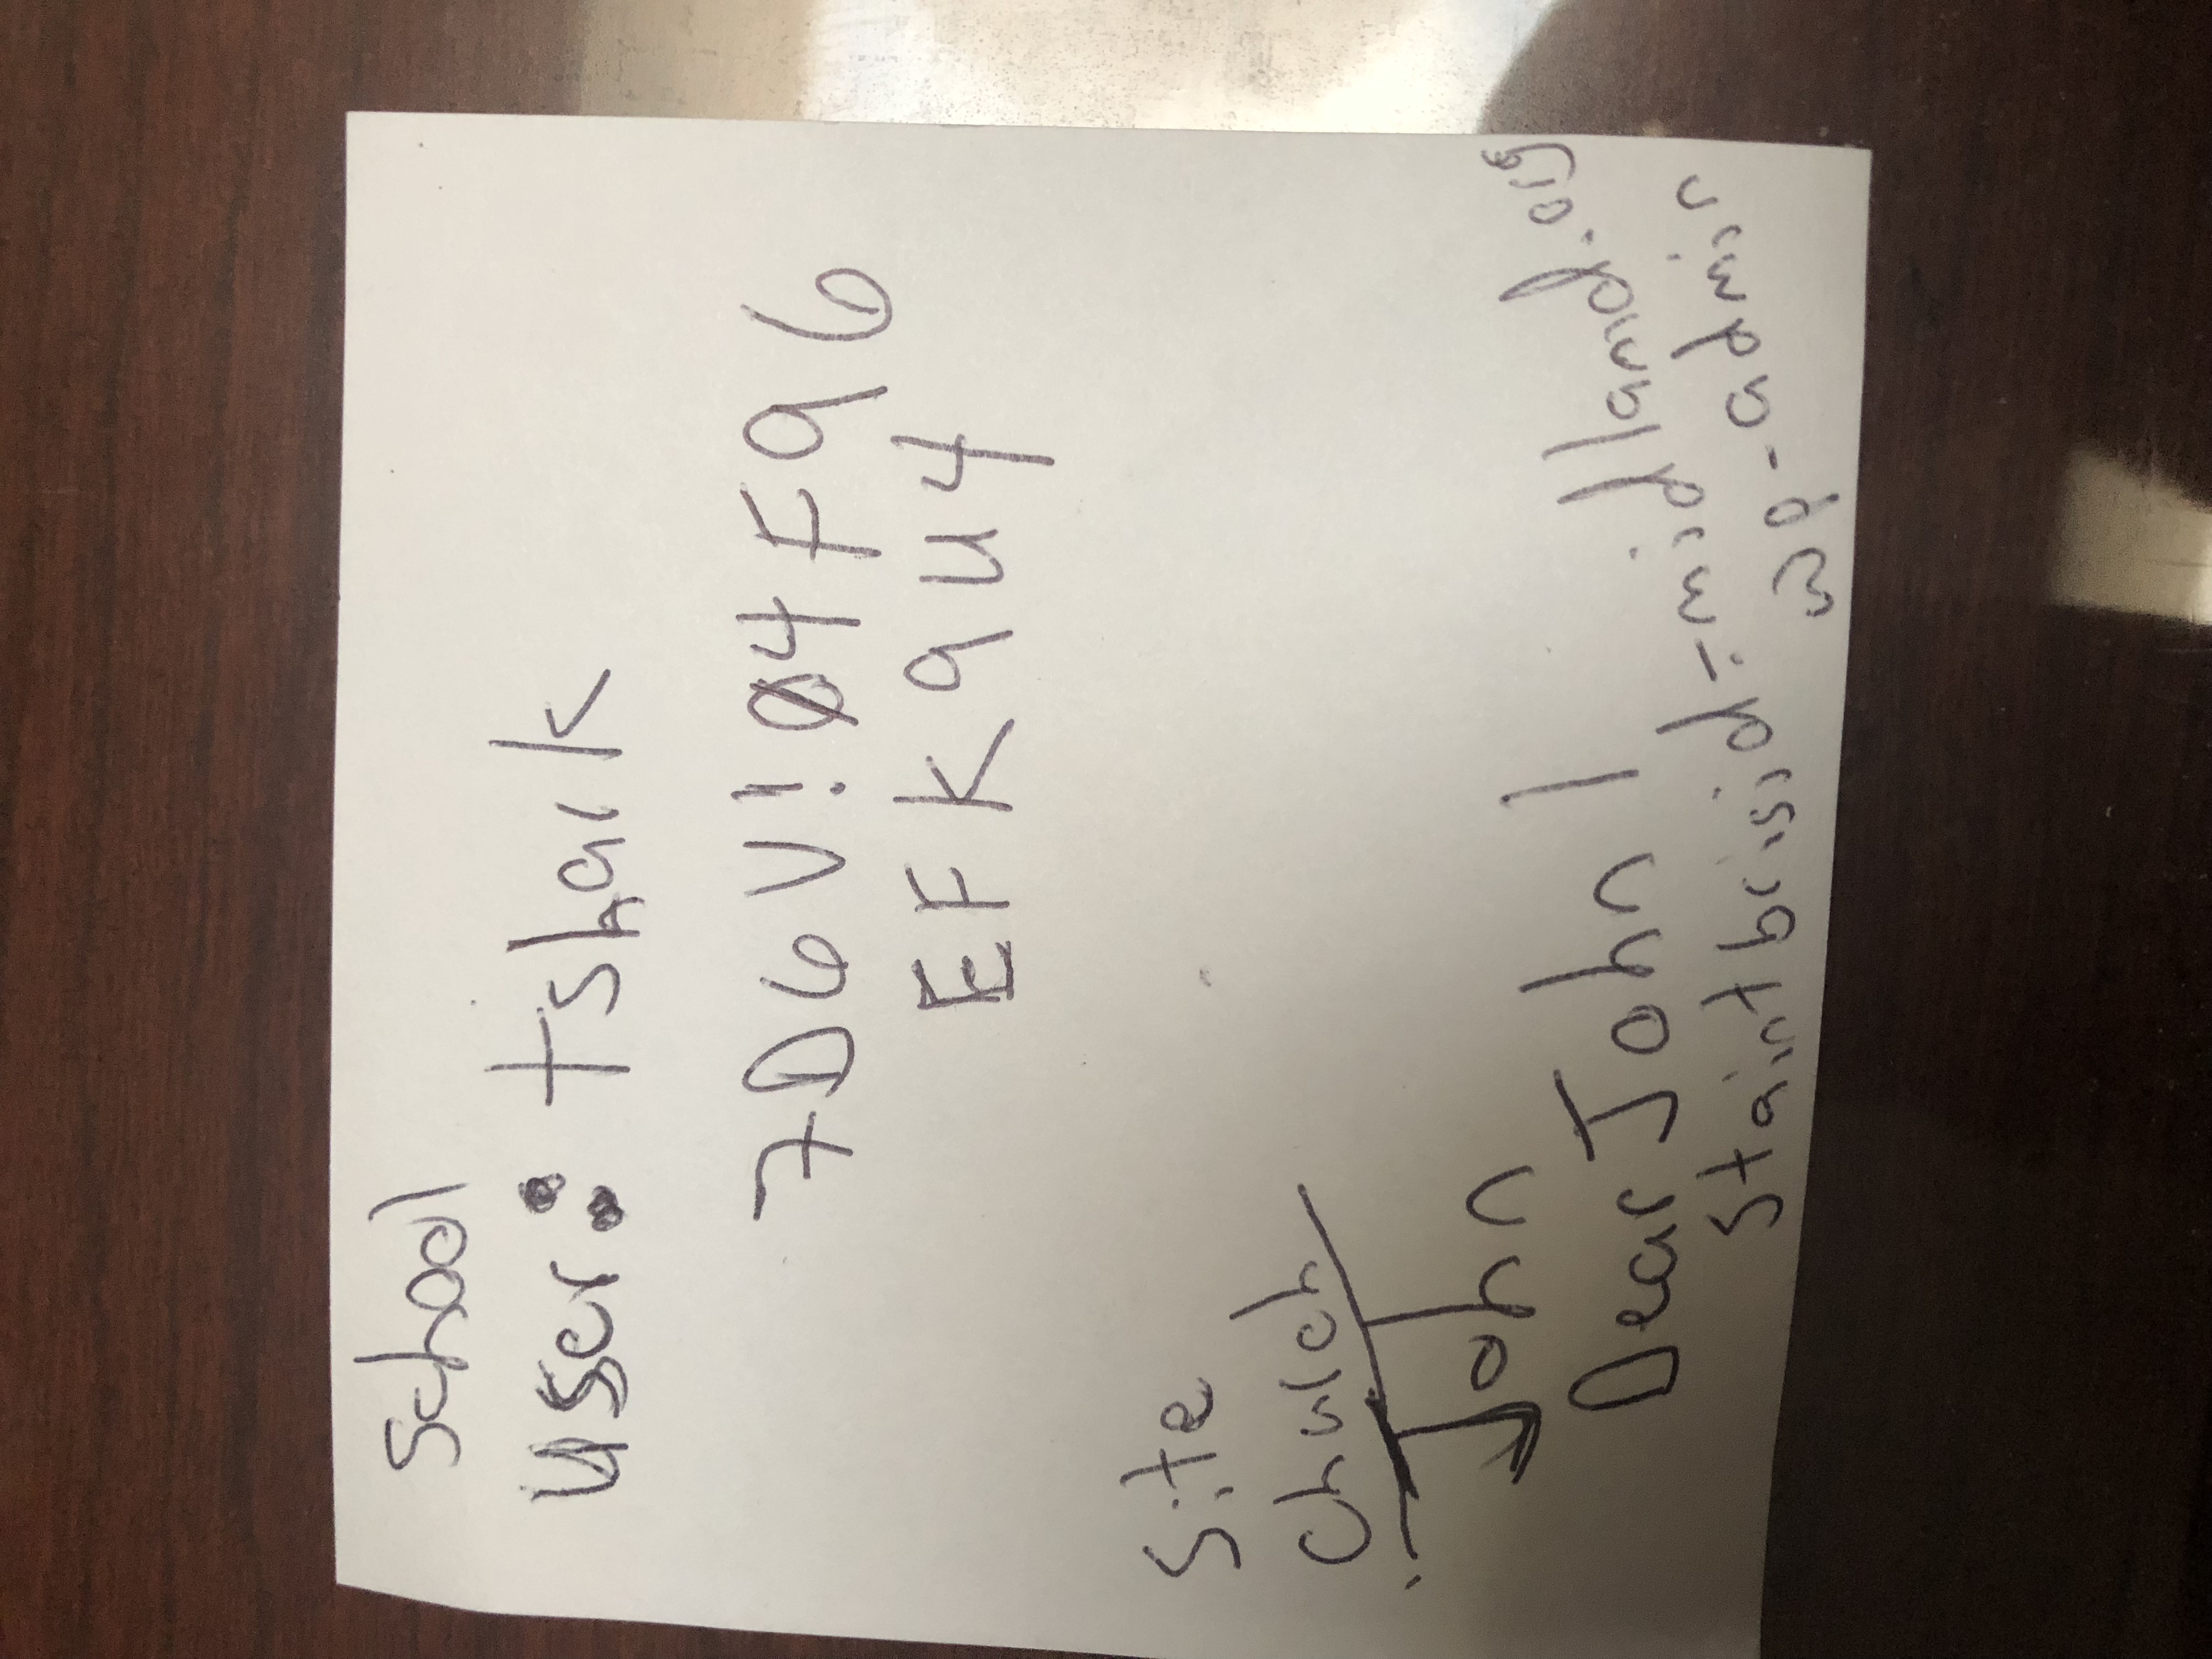 School
User: tshark
7D6V!04F96
EFK9u4
Site
Church
John
Dear John 1
staintbrisid-midland.org
wp-admin